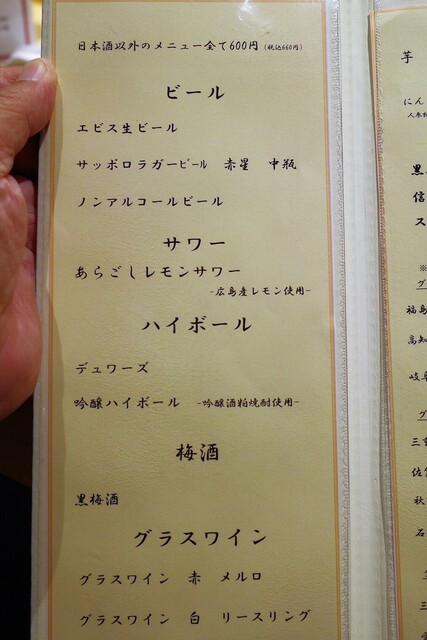 日本酒以外のメニュー全て600円(税込660円)
ビール
ヱビス生ビール
サッポロラガービール 赤星 中瓶
ノンアルコールビール
サワー
あらごしレモンサワー
-広島産レモン使用-
ハイボール
デュワーズ
吟醸ハイボール -吟醸酒粕焼酎使用-
梅酒
黒梅酒
グラスワイン
グラスワイン 赤 メルロ
グラスワイン 白 リースリング
芋
にん
黒
信
ス
※
グ
福島
高知
岐阜
グ
三重
佐
秋
石
三